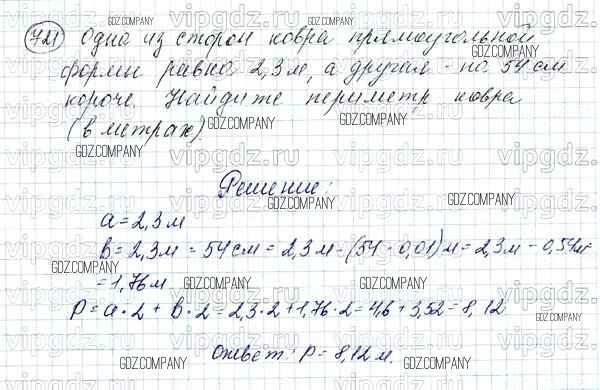 721 Одна из сторон ковра прямоугольной
формы равна 2,3 м, а другая - на 54 см
короче. Найдите периметр ковра
(в метрах).
Решение:
a = 2,3 м
b = 2,3 м = 54 см = 2,3 м - (54 · 0,01) м = 2,3 м - 0,54 м =
= 1,76 м
P = a · 2 + b · 2 = 2,3 · 2 + 1,76 · 2 = 4,6 + 3,52 = 8,12
Ответ: P = 8,12 м.
vipgdz.ru
GDZ.COMPANY